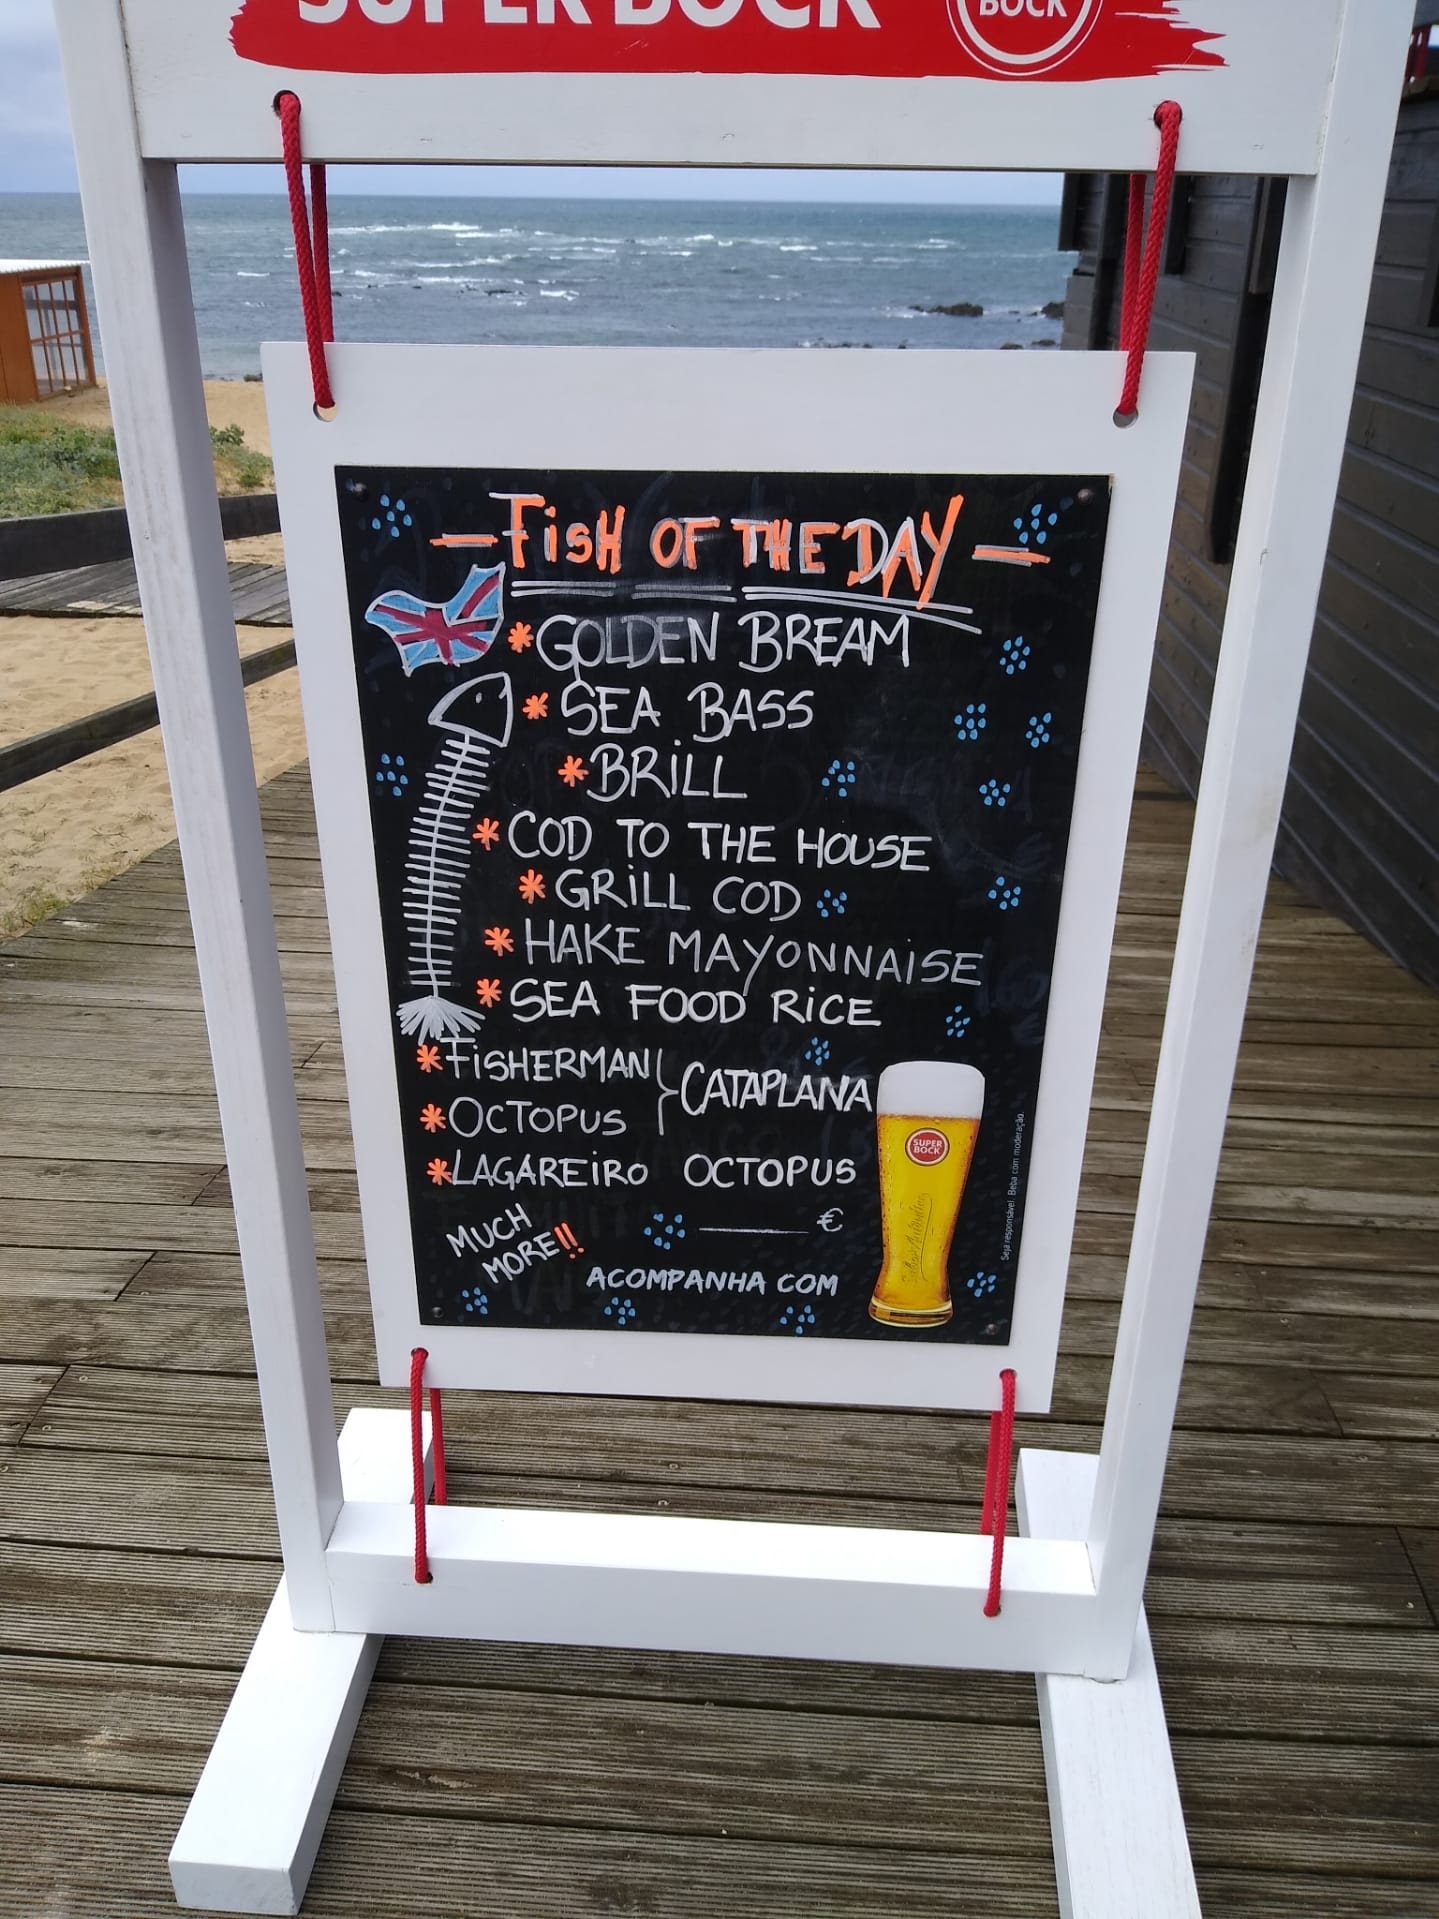 SUPER BOCK
BOCK
FiSH OF THE DAY
* GOLDEN BREAM
* SEA BASS
* BRiLL
* COD TO THE HOUSE
* GRiLL COD
* HAKE MAYONNAiSE
* SEA FOOD RiCE
* FiSHERMAN } CATAPLANA
* OCTOPUS
* LAGAREiRO OCTOPUS
MUCH
MORE!!
€
ACOMPANHA COM
SUPER
BOCK
Seja responsável. Beba com moderação.